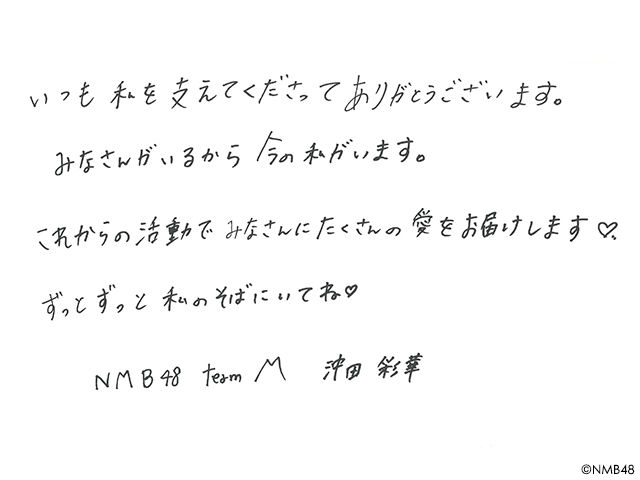 いつも私を支えてくださってありがとうございます。
みなさんがいるから今の私がいます。
これからの活動でみなさんにたくさんの愛をお届けします♡
ずっとずっと私のそばにいてね♡
NMB48 team M 沖田 彩華
©NMB48